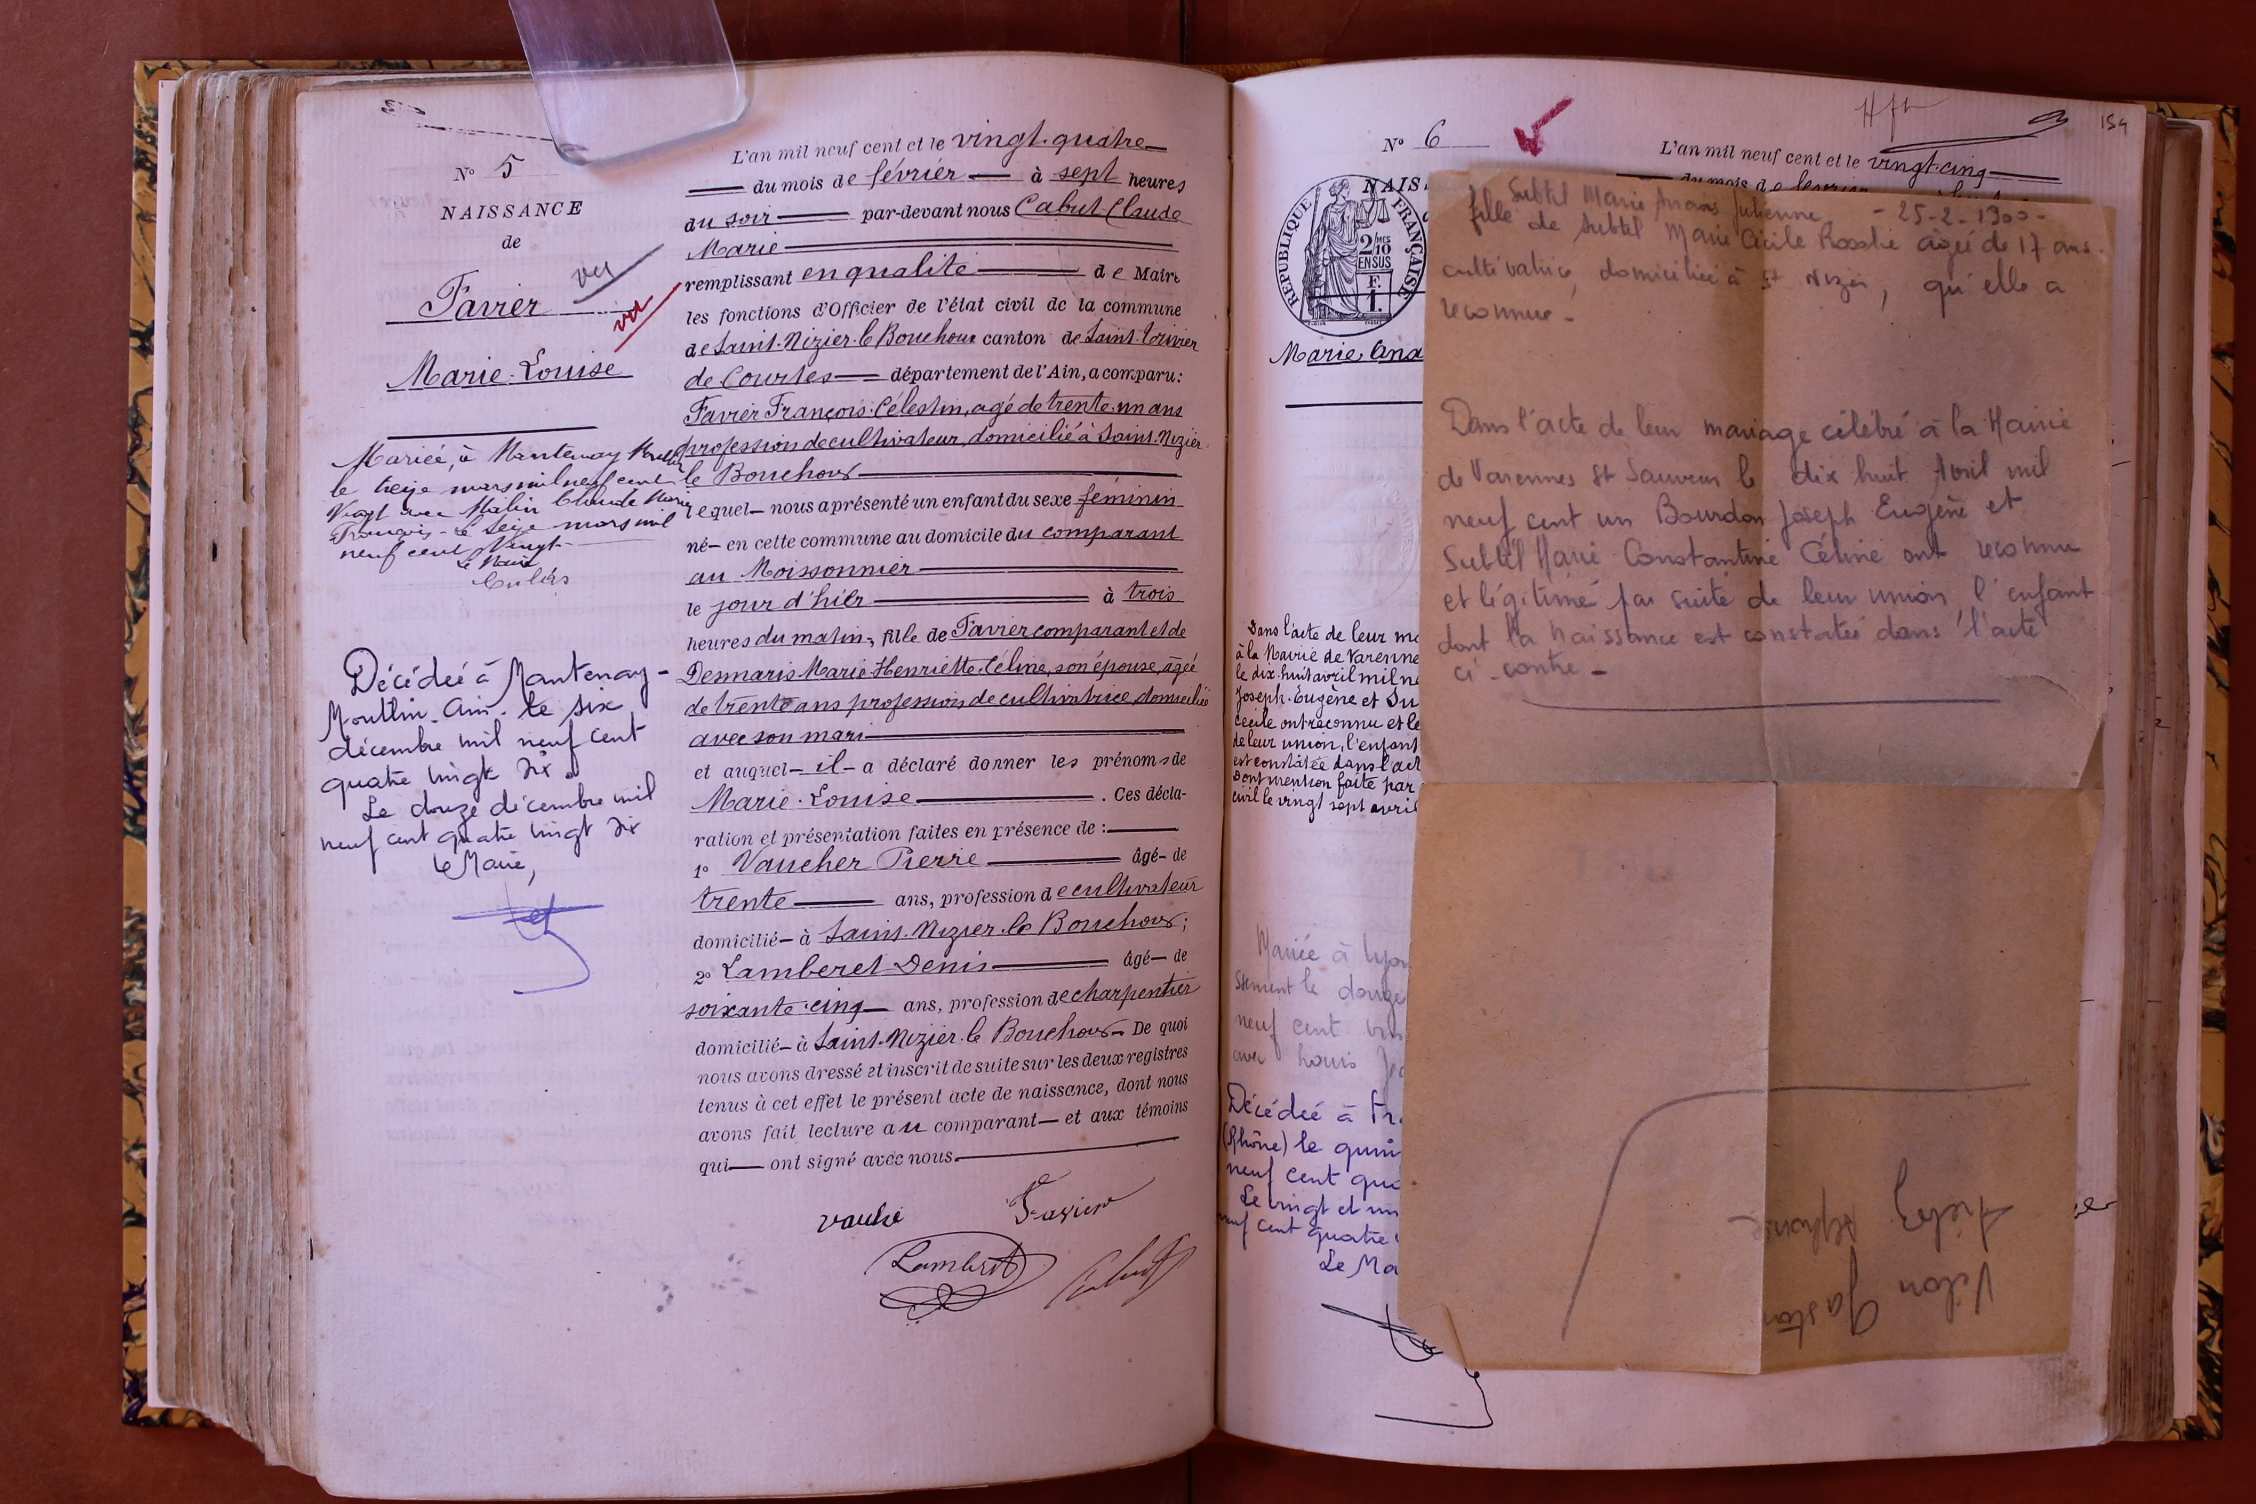 N° 5
NAISSANCE
de
Favier
vu
vu
Marie-Louise
Mariée, à Mantenay
le treize mars mil neuf cent
Vingt avec Malin Claude Marie
François - Le seize mars mil
neuf cent Vingt
Le Maire
Décédée à Mantenay-
Montlin-Ain-le six
décembre mil neuf cent
quatre vingt dix.
Le douze décembre mil
neuf cent quatre vingt dix
Le Maire,
L'an mil neuf cent et le vingt-quatre
du mois de février à sept heures
du soir par-devant nous Cabut Claude
Marie
remplissant en qualité de Maire
les fonctions d'Officier de l'état civil de la commune
de Saint-Nizier-le Bouchoux canton de Saint-Trivier
de Courtes département de l'Ain, a comparu:
Favier François-Célestin, agé de trente-un ans
profession de cultivateur, domicilié à Saint-Nizier-
le Bouchoux
lequel nous a présenté un enfant du sexe féminin
né en cette commune au domicile du comparant
au Moissonnier
le jour d'hier à trois
heures du matin, fille de Favier comparant et de
Desmaris Marie-Henriette-Céline, son épouse, âgée
de trente ans profession de cultivatrice domiciliée
avec son mari
et auquel il a déclaré donner les prénoms de
Marie-Louise. Ces décla-
ration et présentation faites en présence de :
1° Vaucher Pierre âgé de
trente ans, profession de cultivateur
domicilié à Saint-Nizier-le Bouchoux;
2° Lamberet Denis âgé de
soixante-cinq ans, profession de charpentier
domicilié à Saint-Nizier-le Bouchoux De quoi
nous avons dressé et inscrit de suite sur les deux registres
tenus à cet effet le présent acte de naissance, dont nous
avons fait lecture au comparant et aux témoins
qui ont signé avec nous.
Favier
Lambret
Cabut
N° 6
154
L'an mil neuf cent et le vingt-cinq
du mois de février
NAIS
RÉPUBLIQUE FRANÇAISE
2/10
EN SUS
F.
1.
Marie, Ana
Dans l'acte de leur ma
à la Mairie de Varenne
le dix-huit avril mil ne
Joseph-Eugène et Su
Cécile ont reconnu et lé
de leur union, l'enfant
est constatée dans l'act
Dont mention faite par
civil le vingt sept avril
Mariée à Lyon
ssement le douze
neuf cent vin
avec Louis
Décédée à Fr
(Rhône) le quin
neuf cent qua
Le vingt et un
neuf cent quatre
Le Ma
Subtil Marie Julienne - 25-2-1900-
fille de Subtil Marie Cécile Rosalie âgée de 17 ans.
cultivatrice, domiciliée à St Nizier, qu'elle a
reconnue.
Dans l'acte de leur mariage célébré à la Mairie
de Varennes St Sauveur le dix huit Avril mil
neuf cent un Bourdon Joseph Eugène et
Subtil Marie Constantine Céline ont reconnu
et légitimé par suite de leur union, l'enfant
dont la naissance est constatée dans l'acte
ci-contre-
Alphonse
Gaston